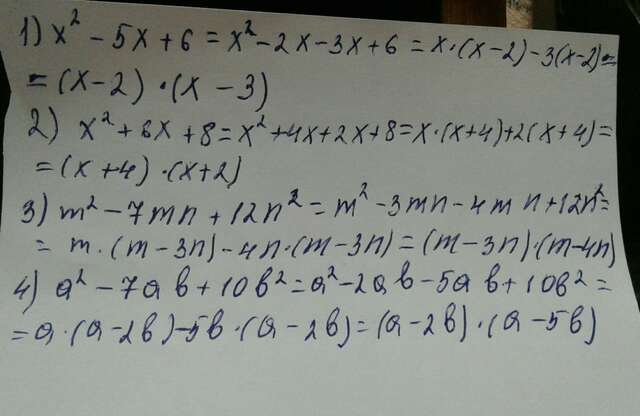 1) x² - 5x + 6 = x² - 2x - 3x + 6 = x·(x-2) - 3(x-2) =
= (x-2)·(x-3)
2) x² + 6x + 8 = x² + 4x + 2x + 8 = x·(x+4) + 2(x+4) =
= (x+4)·(x+2)
3) m² - 7mn + 12n² = m² - 3mn - 4mn + 12n² =
= m·(m-3n) - 4n·(m-3n) = (m-3n)·(m-4n)
4) a² - 7ab + 10b² = a² - 2ab - 5ab + 10b² =
= a·(a-2b) - 5b·(a-2b) = (a-2b)·(a-5b)